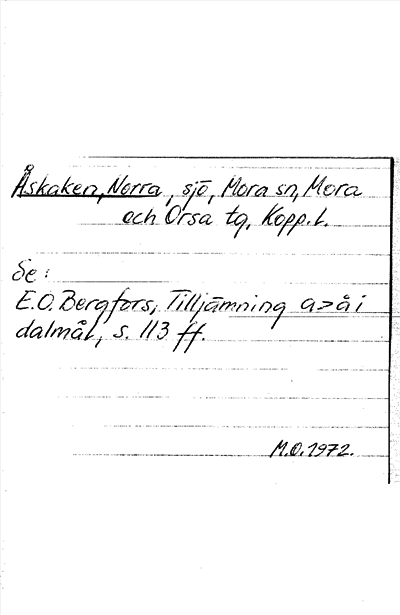 Åskaken, Norra, sjö, Mora sn, Mora
och Orsa tg, Kopp. l.
Se:
E.O. Bergfors, Tilljämning a>å i
dalmål, s. 113 ff.
M.O. 1972.